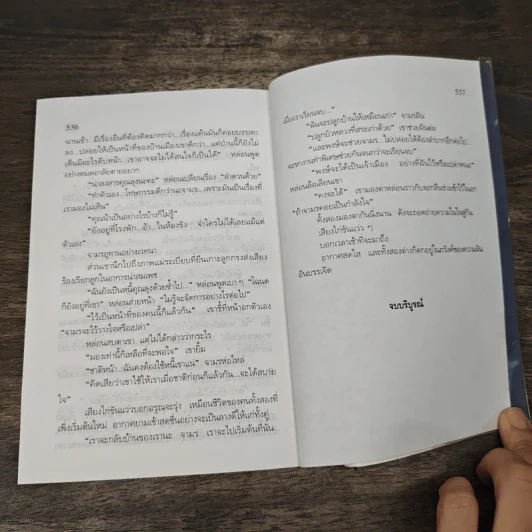 536
นานเข้า...มีเรื่องอื่นที่ต้องคิดมากกว่า...เรื่องแค้นมันก็ค่อยบรรเทา
ลง...ปล่อยให้เป็นหน้าที่ของบ้านเมืองเขาดีกว่า...แต่ป้านนี้ก็ยังไม่
เห็นมีอะไรคืบหน้า...เขาอาจจะไม่ได้สนใจก็เป็นได้” หล่อนพูด
อย่างหมดอาลัยตายอยาก
“น่าสงสารคุณลุงนะคะ” หล่อนเปลี่ยนเรื่อง “ลำดวนด้วย”
“ทำตัวเอง...โทษกรรมดีกว่านะจามร...เพราะมันเป็นเรื่องที่
เรามองไม่เห็น”
“คุณน้าเป็นอย่างไรบ้างก็ไม่รู้”
“ยังอยู่ที่โรงพัก...อ้ำ...ในห้องขัง จำใครไม่ได้เลยแม้แต่
ตัวเอง”
จามรอุทานอย่างเวทนา
ส่วนเขานึกไปถึงภาพแม่ระเบียบที่ยืนเกาะลูกกรงส่งเสียง
ร้องเรียกลูกในอาการน่าสมเพช
“ฉันยังเป็นหนี้คุณลุงด้วยซ้ำไป...” หล่อนพูดเบา ๆ “โฉนด
ก็ยังอยู่ที่เขา” หล่อนส่ายหน้า “ไม่รู้จะจัดการอย่างไรต่อไป”
“ไว้เป็นหน้าที่ของคนนี้ก็แล้วกัน” เขาชี้ที่หน้าอกตัวเอง
“จามรจะไว้วางใจหรือเปล่า”
หล่อนสบตาเขา แต่ไม่ได้กล่าวว่ากระไร
“มองเท่านี้ก็เหลือที่จะพอใจ” เขายิ้ม
“ชาติหน้า...ฉันคงต้องใช้หนี้เขาแน่” จามรห่อไหล่
“คิดเสียว่าเขาใช้ให้เราเมื่อชาติก่อนก็แล้วกัน...จะได้สบาย
ใจ”
เสียงไก่ขันแว่วบอกอรุณจะรุ่ง เหมือนชีวิตของคนทั้งสองที่
เพิ่งเริ่มต้นใหม่ อากาศยามเช้าสดชื่นอย่างจะเป็นลางดีให้แก่ทั้งคู่
“เราจะกลับบ้านของเรานะ จามร เราจะไปเริ่มต้นที่นั่น
537
เมื่อเราเรียนจบ...”
“ฉันจะปลูกบ้านให้เหมือนเก่า” จามรฝัน
“ปลูกบัวหลวงที่สระเก่าด้วย” เขาช่วยฝันต่อ
“และพงษ์จะช่วยจามร...ไม่ปล่อยให้ต้องลำบากอีกต่อไป...
จะหางานทำพิเศษช่วยกันจนกว่าจะเรียนจบ”
“พงษ์จะได้เป็นเจ้าเมือง อย่างที่ฝันไว้หรือเปล่าหนอ”
หล่อนล้อเลียนเขา
“คงจะได้” เขามองตาหล่อนราวกับจะกลืนร่างเข้าไว้ในอก
“ถ้าจามรคอยเป็นกำลังใจ”
ทั้งสองมองตากันนิ่งนาน ดังจะถอดถ่ายความในใจสู่กัน
เสียงไก่ขันแว่ว ๆ
บอกเวลาเช้าที่จะมาถึง
อากาศสดใส และทั้งสองต่างก็ตกอยู่ในภวังค์ของความฝัน
อันบรรเจิด
จบบริบูรณ์